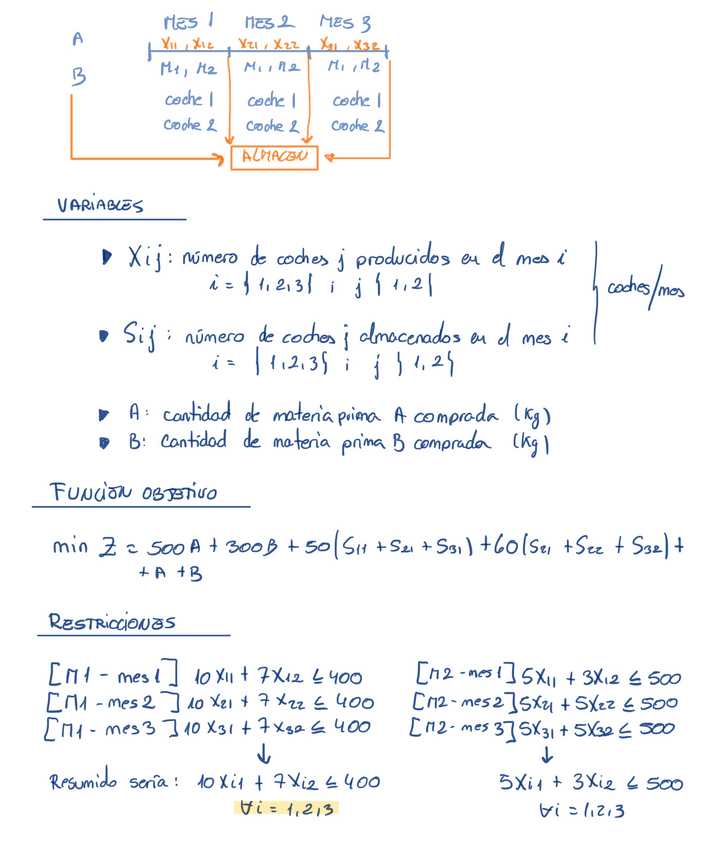 MES 1 MES 2 MES 3
A X11, X12 X21, X22 X31, X32
B M1, M2 M1, M2 M1, M2
coche 1 coche 1 coche 1
coche 2 coche 2 coche 2
ALMACEN
VARIABLES
Xij: número de coches j producidos en el mes i
i = {1,2,3} ; j {1,2}
coches/mes
Sij: número de coches j almacenados en el mes i
i = {1,2,3} ; j {1,2}
A: cantidad de materia prima A comprada (kg)
B: Cantidad de materia prima B comprada (kg)
FUNCIÓN OBJETIVO
min Z = 500A + 300B + 50(S11 + S21 + S31) + 60(S21 + S22 + S32) +
+ A + B
RESTRICCIONES
[M1 - mes1] 10 X11 + 7X12 ≤ 400 [M2 - mes1] 5X11 + 3X12 ≤ 500
[M1 - mes2] 10 X21 + 7 X22 ≤ 400 [M2 - mes2] 5X21 + 5X22 ≤ 500
[M1 - mes3] 10 X31 + 7X32 ≤ 400 [M2 - mes3] 5X31 + 5X32 ≤ 500
↓ ↓
Resumido sería: 10Xi1 + 7Xi2 ≤ 400 5Xi1 + 3Xi2 ≤ 500
∀i = 1,2,3 ∀i = 1,2,3